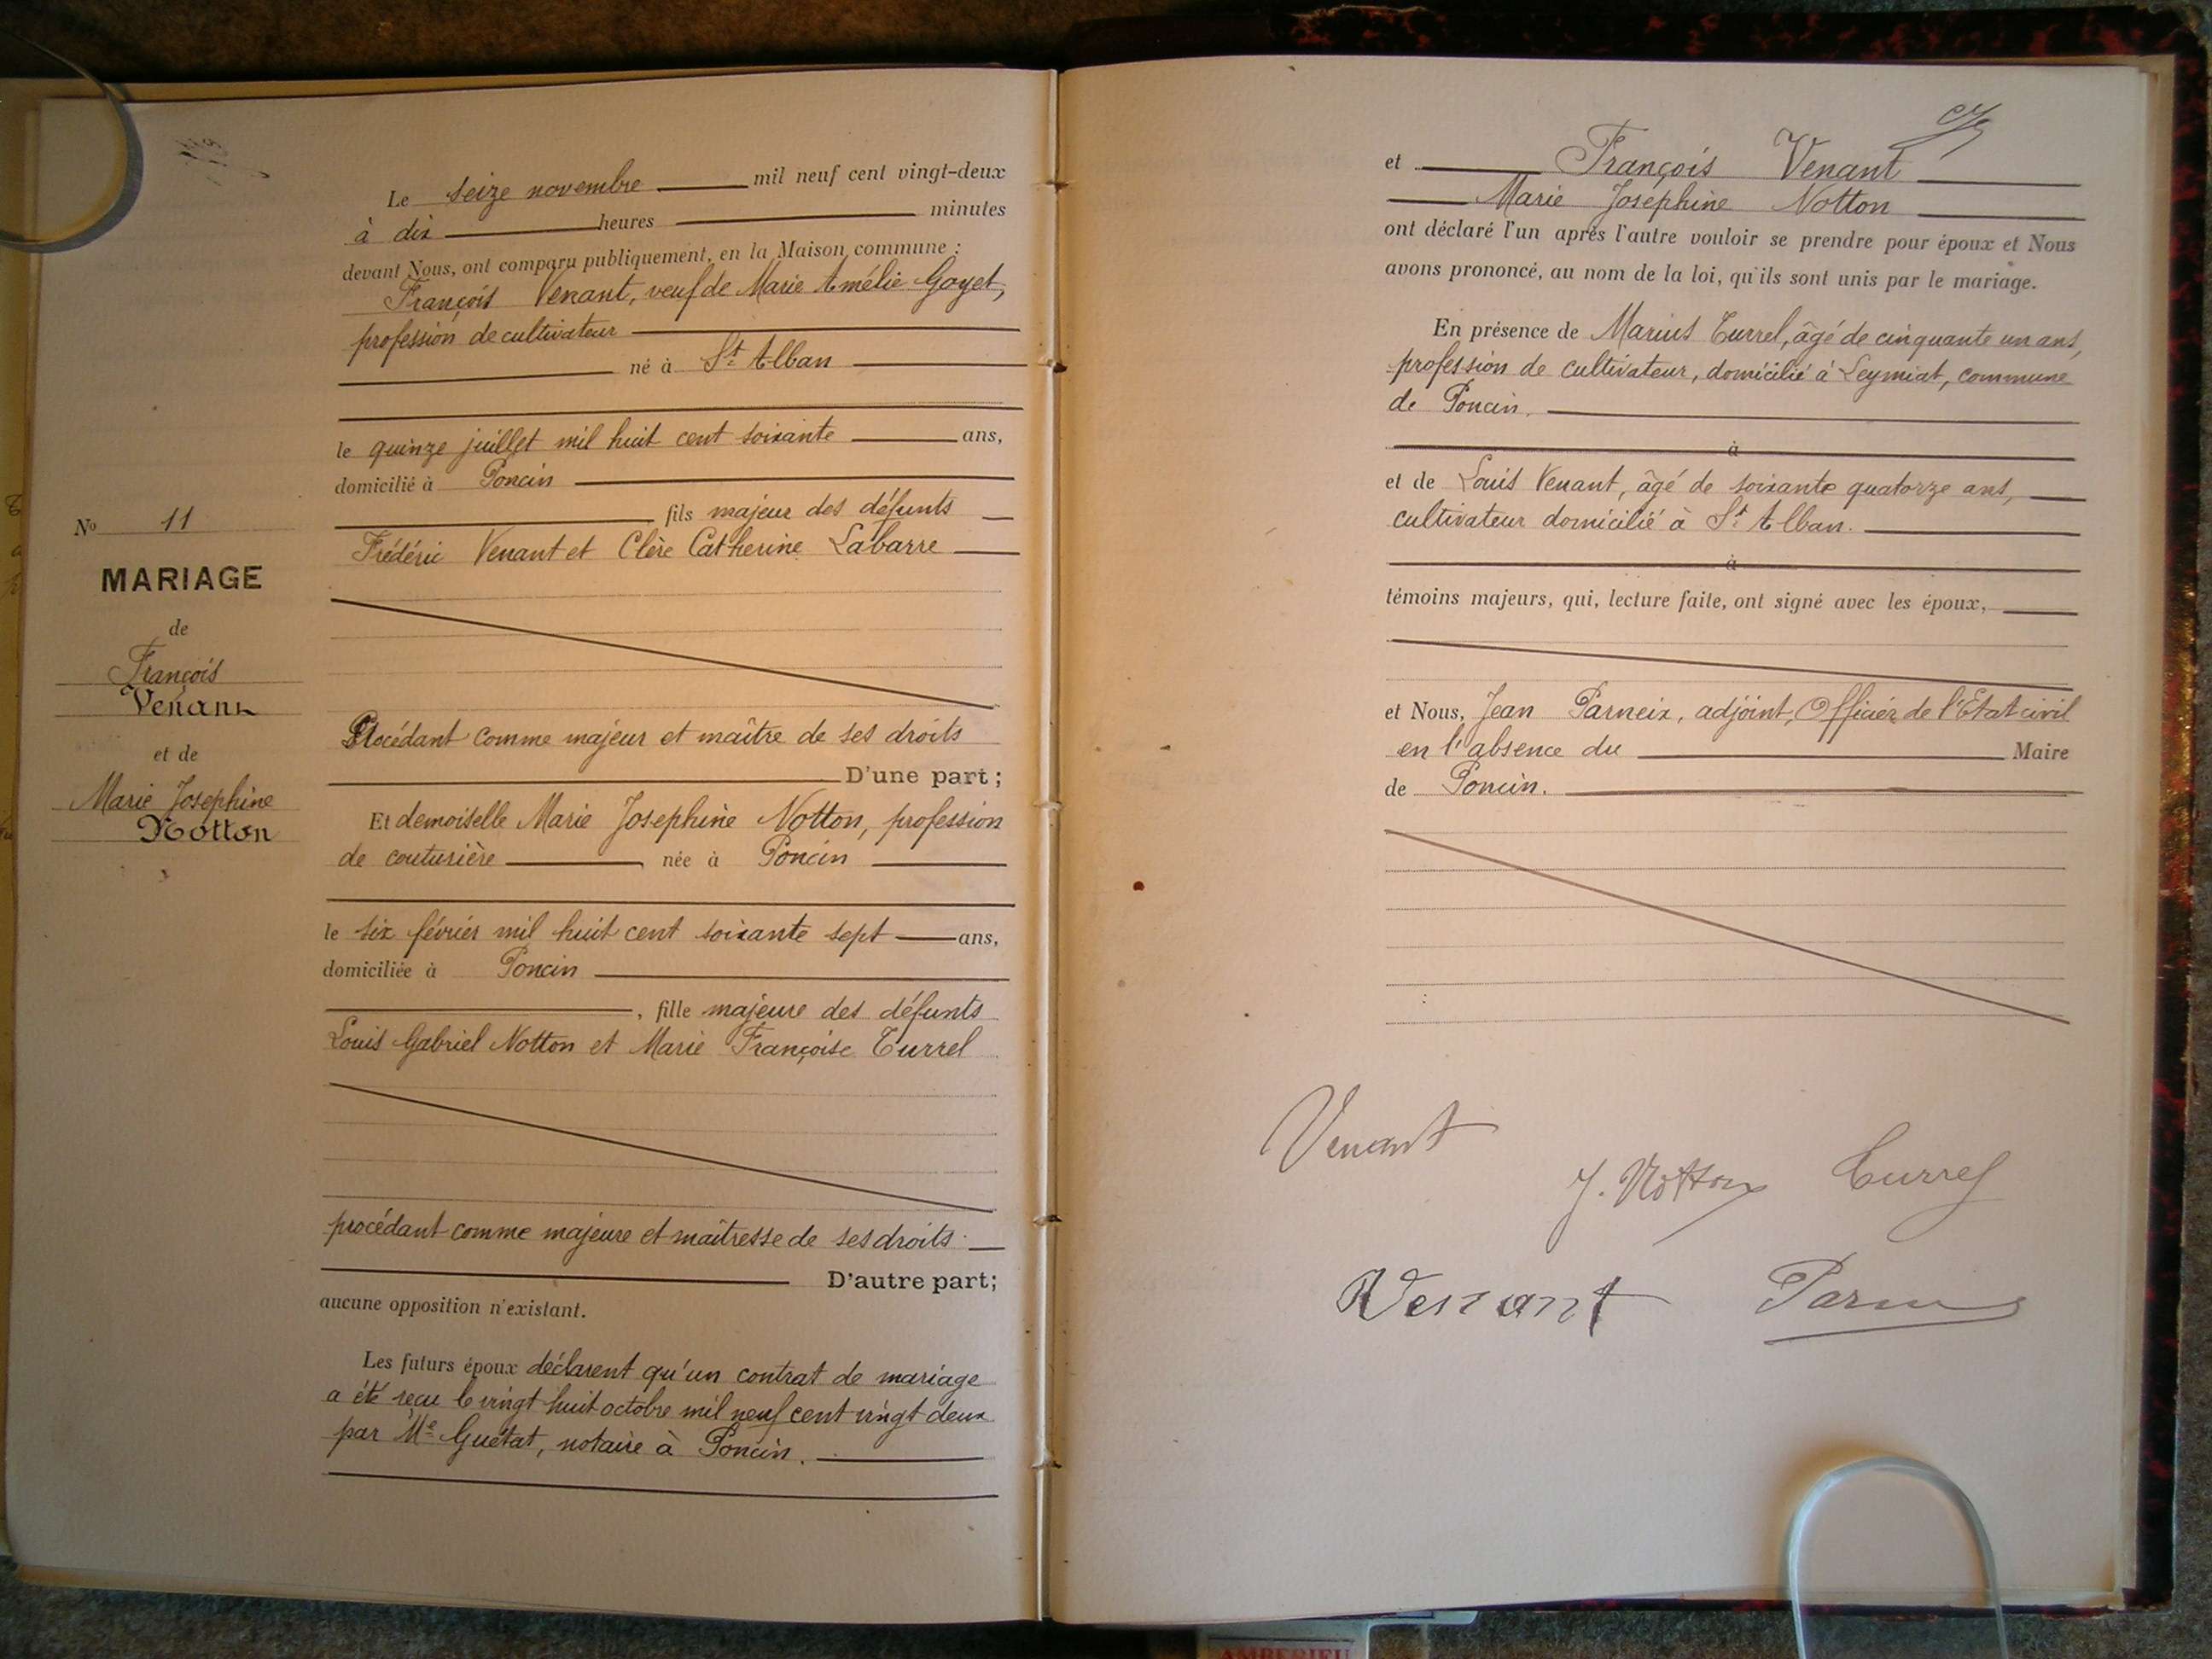 Le seize novembre mil neuf cent vingt-deux
à dix heures minutes
devant Nous, ont comparu publiquement, en la Maison commune :
François Venant, veuf de Marie Amélie Goyet,
profession de cultivateur
né à St Alban
le quinze juillet mil huit cent soixante ans,
domicilié à Poncin
fils majeur des défunts
Frédéric Venant et Clère Catherine Labarre
Procédant comme majeur et maître de ses droits
D'une part ;
Et demoiselle Marie Josephine Notton, profession
de couturière, née à Poncin
le six février mil huit cent soixante sept ans,
domiciliée à Poncin
, fille majeure des défunts
Louis Gabriel Notton et Marie Françoise Turrel
procédant comme majeure et maîtresse de ses droits
D'autre part ;
aucune opposition n'existant.
Les futurs époux déclarent qu'un contrat de mariage
a été reçu le vingt huit octobre mil neuf cent vingt deux
par Me Guétat, notaire à Poncin.
No 11
MARIAGE
de
François
Venant
et de
Marie Josephine
Notton
et François Venant
Marie Josephine Notton
ont déclaré l'un après l'autre vouloir se prendre pour époux et Nous
avons prononcé, au nom de la loi, qu'ils sont unis par le mariage.
En présence de Marius Turrel, âgé de cinquante un ans,
profession de cultivateur, domicilié à Leymiat, commune
de Poncin.
à
et de Louis Venant, âgé de soixante quatorze ans,
cultivateur domicilié à St Alban.
à
témoins majeurs, qui, lecture faite, ont signé avec les époux,
et Nous, Jean Parneix, adjoint, Officier de l'Etat civil
en l'absence du Maire
de Poncin.
Venant
J. Notton Turrel
Venant
AMBERIEU